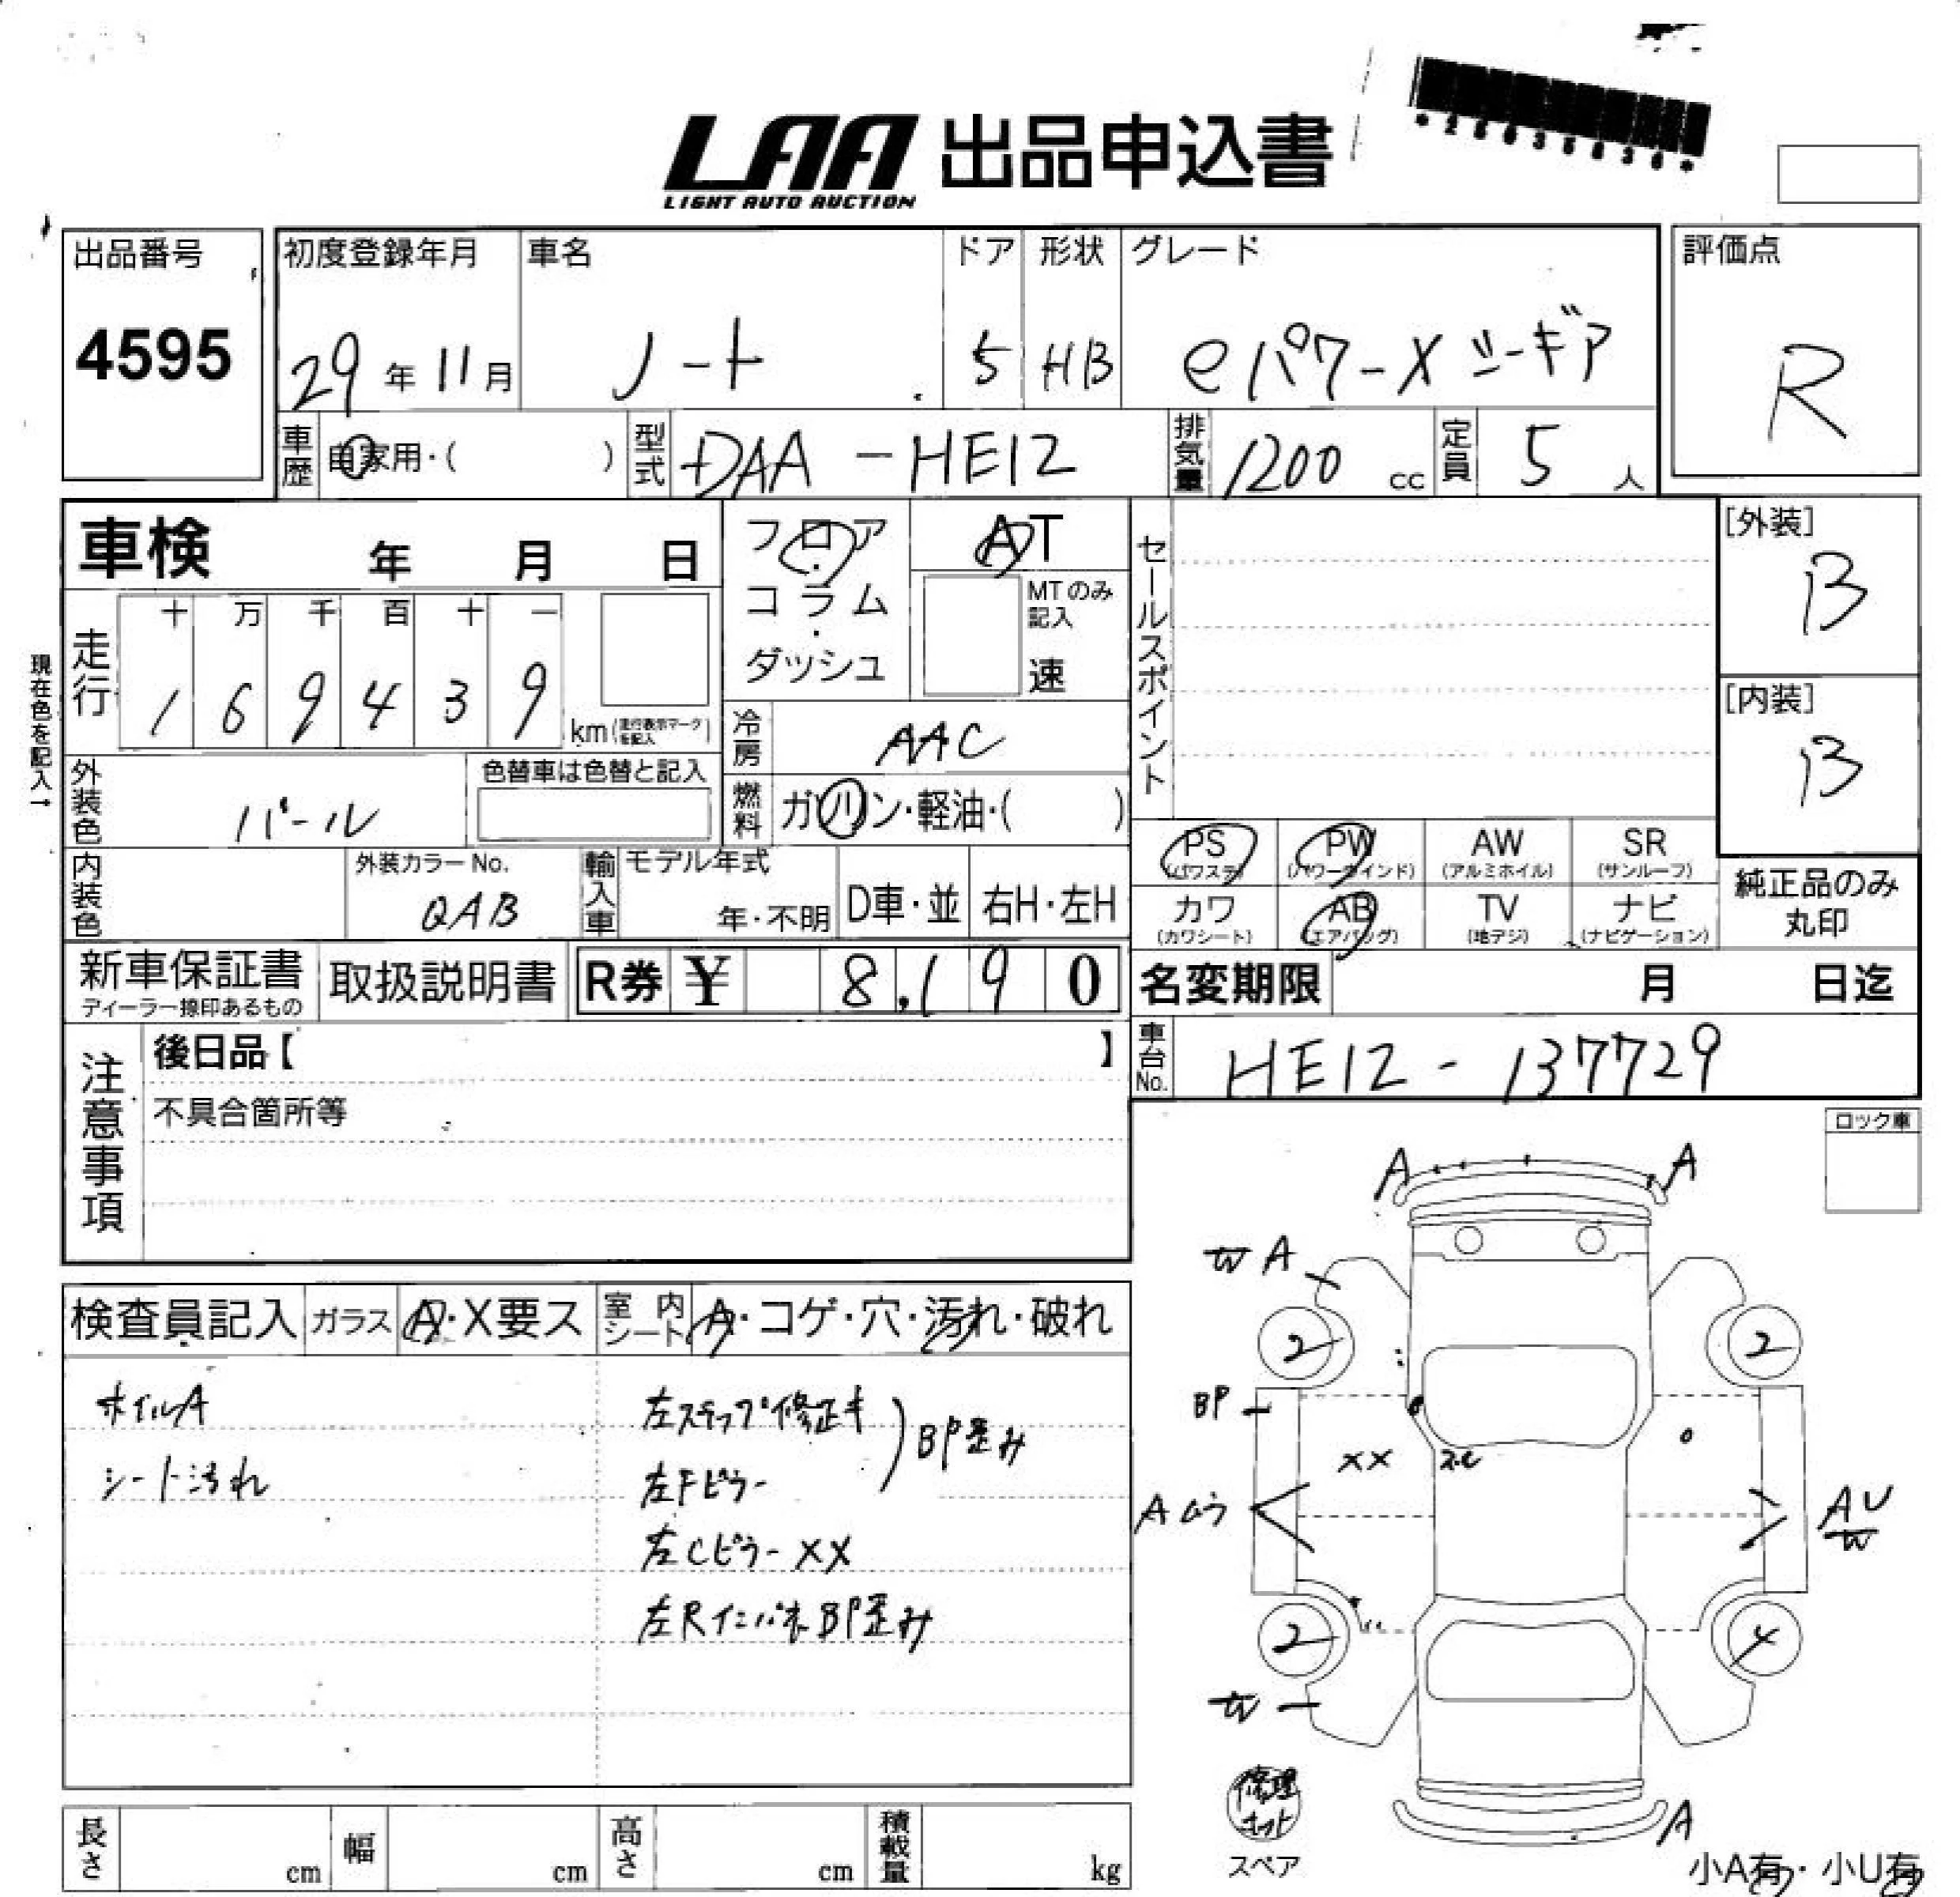 LAA 出品申込書
LIGHT AUTO AUCTION
出品番号
4595
初度登録年月
29年11月
車名
ノート
ドア
5
形状
HB
グレード
eパワーX シーギア
評価点
R
車歴
自家用・( )
型式
DAA-HE12
排気量
1200 cc
定員
5人
車検 年 月 日
フロア・コラム・ダッシュ
AT
MTのみ記入
速
セールスポイント
[外装]
B
[内装]
B
現在色を記入→
走行
十 万 千 百 十 一
1 6 9 4 3 9
km(走行表示マークを記入)
冷房
AAC
外装色
パール
色替車は色替と記入
燃料
ガソリン・軽油・( )
PS (パワステ)
PW (パワーウインド)
AW (アルミホイル)
SR (サンルーフ)
カワ (カワシート)
AB (エアバッグ)
TV (地デジ)
ナビ (ナビゲーション)
純正品のみ
丸印
内装色
外装カラーNo.
QAB
輸入車
モデル年式
年・不明
D車・並
右H・左H
新車保証書
ディーラー捺印あるもの
取扱説明書
R券 ¥ 8,190
名変期限 月 日迄
車台No.
HE12-137729
注意事項
後日品【 】
不具合箇所等
ロック車
検査員記入
ガラス
A・X要ス
室内シート
A・コゲ・穴・汚れ・破れ
ホイルA
シート汚れ
左ステップ修正キ
左Fピラー
BP歪み
左Cピラー XX
左Rインパネ BP歪み
A
A
W A
2
2
BP
XX
A ムラ
AU
W
2
4
W
A
修理キット
スペア
小A有・小U有
長さ cm
幅 cm
高さ cm
積載量 kg